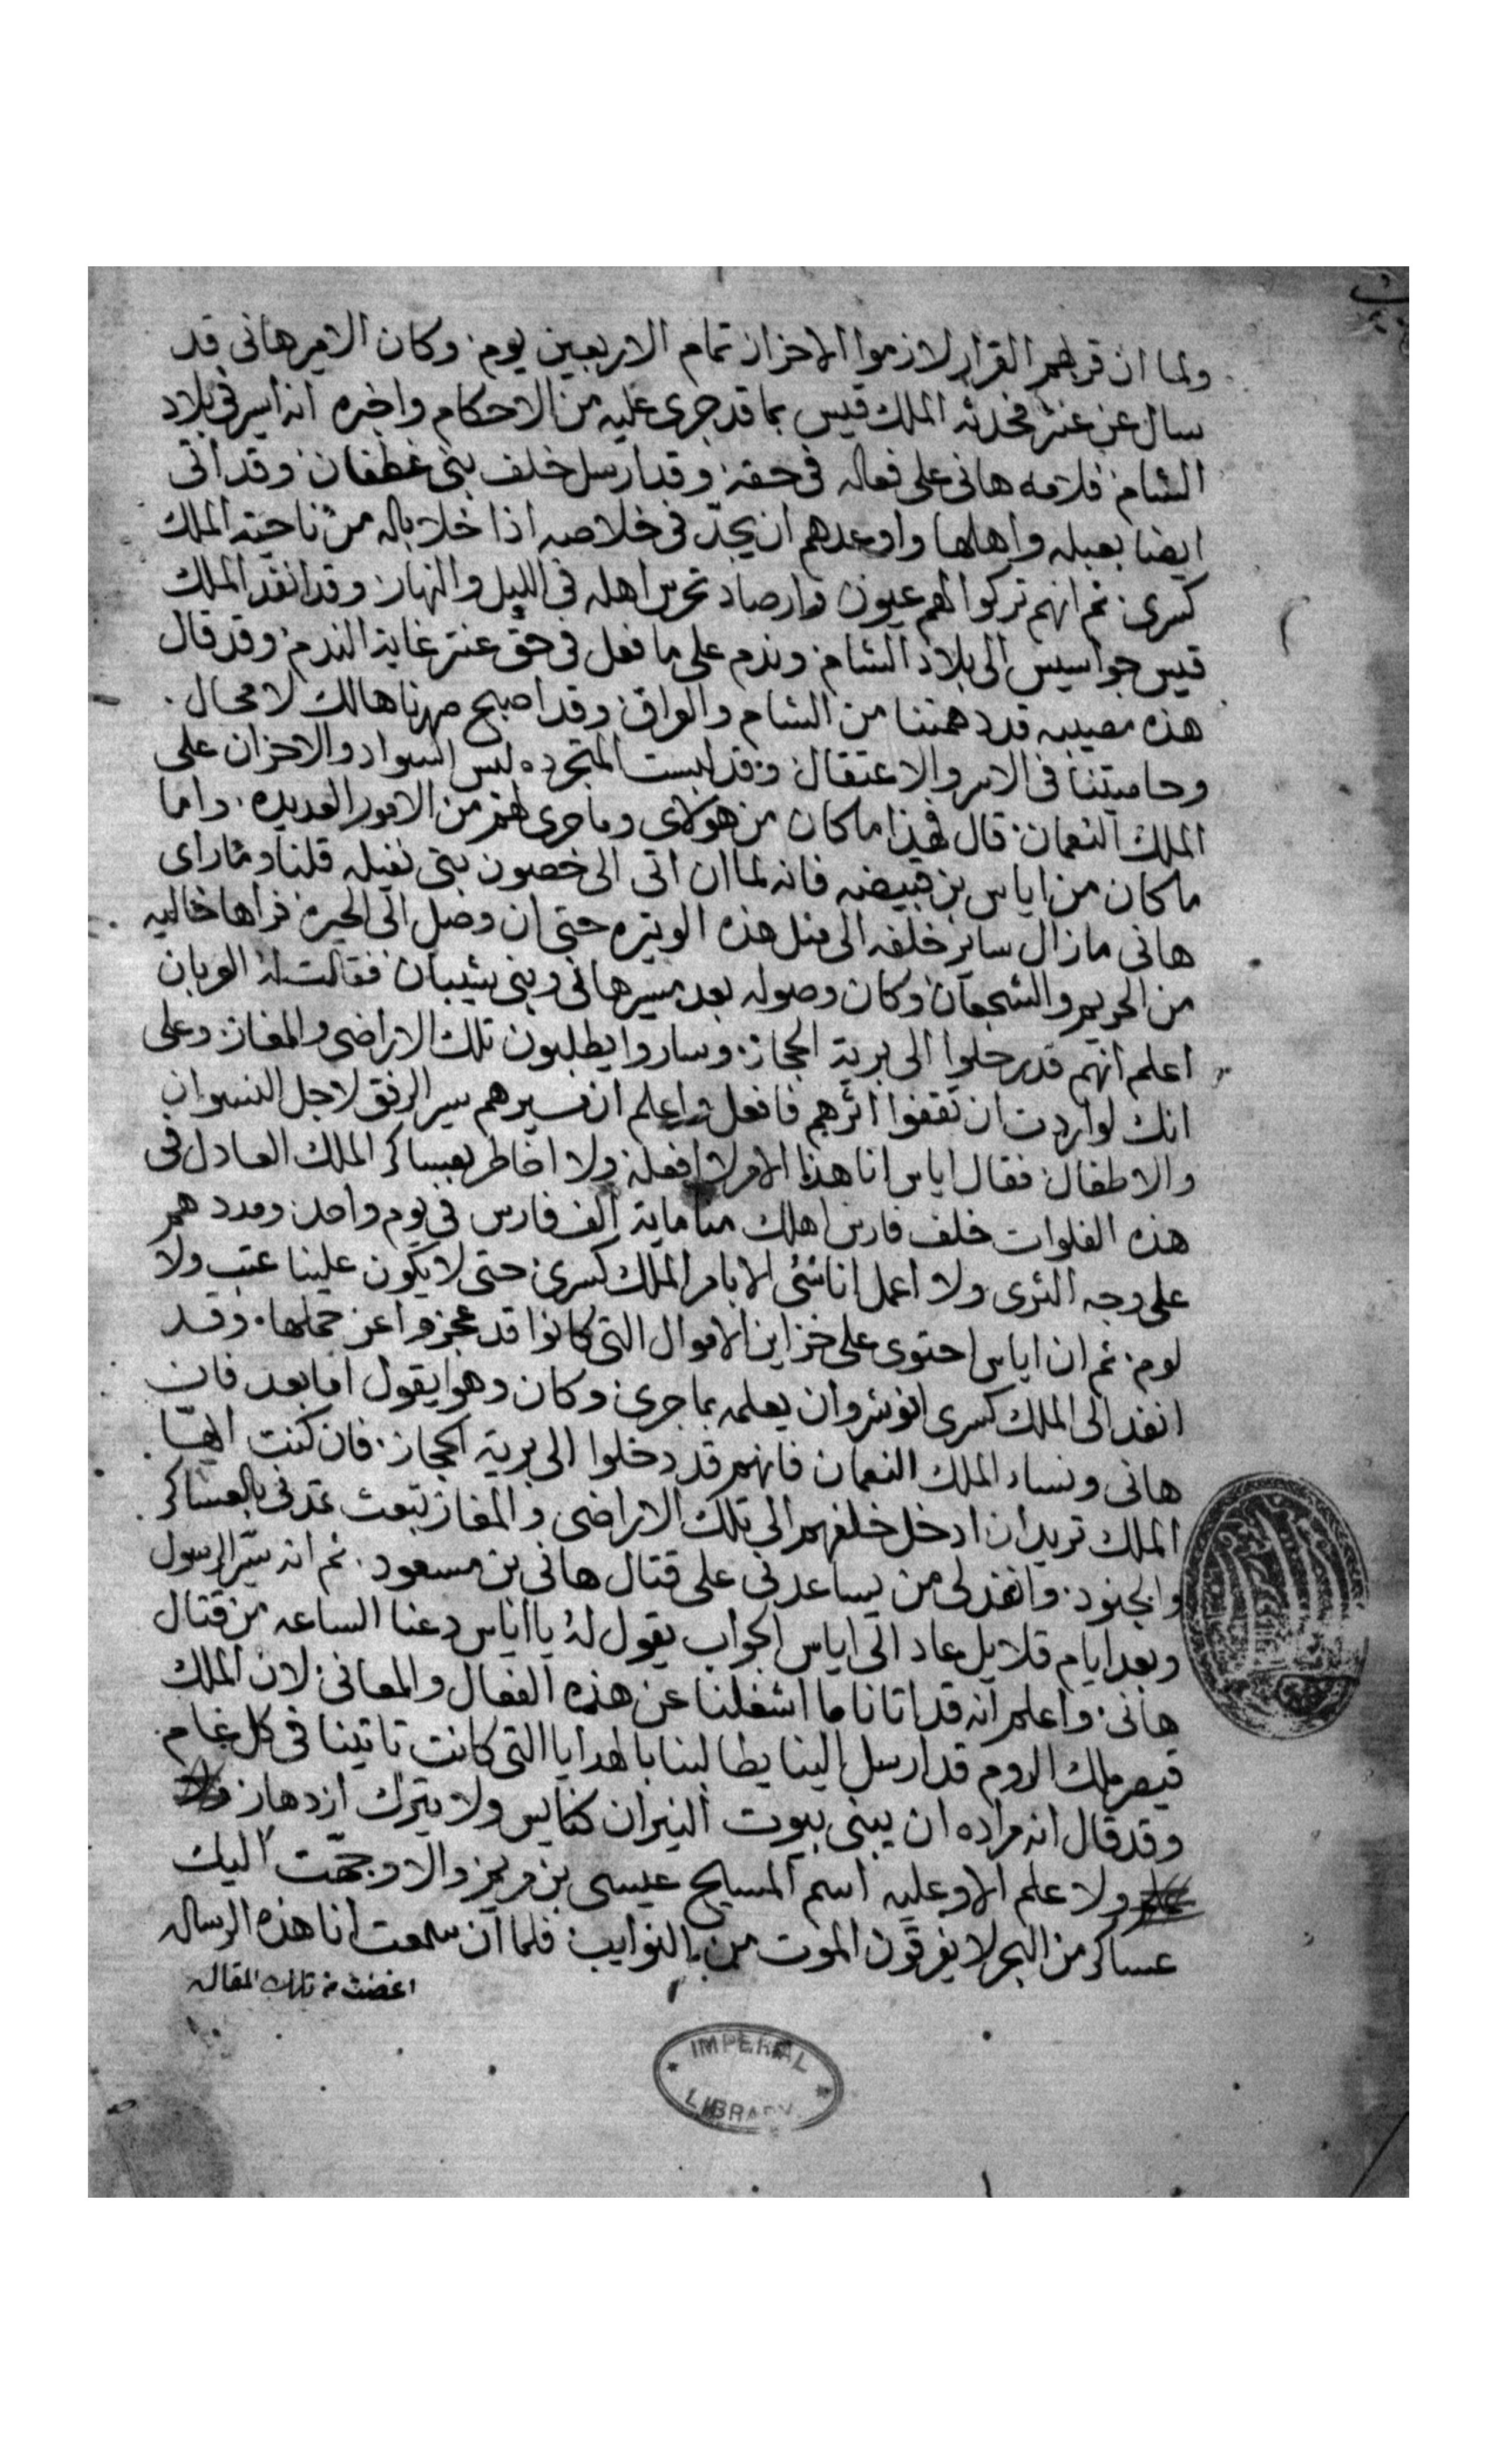 ولما ان قر بهم القرار لازموا الاحزان تمام الاربعين يوم. وكان الامير هانى قد
سال عن عنتر فحدثه الملك قيس بما قد جرى عليه من الاحكام واخبره انه اسير فى بلاد
الشام فلامه هانى على فعاله فى حقه وقد ارسل خلف بنى غطفان وقد اتى
ايضا بعبله واهلها واوعدهم ان يجدّ فى خلاصه اذا خلا باله من ناحية الملك
كسرى. ثم انهم تركوا لهم عيون وارصاد تحرس اهله فى الليل والنهار وقد انفد الملك
قيس جواسيس الى بلاد الشام وندم على ما فعل فى حق عنتر غاية الندم وقد قال
هذه مصيبه قد دهمتنا من الشام والعراق وقد اصبح صهرنا هالك لا محال.
وحاميتنا فى الاسر والاعتقال وقد لبست المتجرده لبس السواد والاحزان على
الملك النعمان. قال فهذا ما كان من هولاى وما جرى لهم من الامور العديده. واما
ما كان من اياس بن قبيضه فانه لما ان اتى الى حصون بنى نفيله قلنا وما راى
هانى ما زال ساير خلفه الى مثل هذه الوتيره حتى ان وصل الى الحيره فراها خاليه
من الحريم والشجعان وكان وصوله بعد مسير هانى وبنى شيبان فقالت له العربان
اعلم انهم قد رحلوا الى برية الحجاز. وساروا يطلبون تلك الاراضى والمفاز وعلى
انك لو اردت ان تقفوا اثرهم فافعل واعلم ان مسيرهم سير الرفق لاجل النسوان
والاطفال فقال اياس انا هذا الامر لا افعله ولا اخاطر بعساكر الملك العادل فى
هذه الفلوات خلف فارس اهلك منا ماية الف فارس فى يوم واحد ومددهم
على وجه الثرى ولا اعمل انا شى الا بامر الملك كسرى حتى لا يكون علينا عتب ولا
لوم. ثم ان اياس احتوى على خزاين الاموال التى كانوا قد عجزوا عن حملها. وقد
انفد الى الملك كسرى انوشروان يعلمه بما جرى وكان وهو يقول اما بعد فان
هانى ونساء الملك النعمان فانهم قد دخلوا الى برية الحجاز. فان كنت ايها
الملك تريد ان ادخل خلفهم الى تلك الاراضى والمفاز تبعث تمدنى بالعساكر
والجنود. وانفذ لى من يساعدنى على قتال هانى بن مسعود. ثم انه سيّر الرسول
وبعد ايام قلايل عاد الى اياس الجواب يقول له يا اياس دعنا الساعه من قتال
هانى. واعلم انه قد اتانا ما اشغلنا عن هذه الفعال والمعانى لان الملك
قيصر ملك الروم قد ارسل الينا يطالبنا بالهدايا التى كانت تاتينا فى كل عام
وقد قال انه مراده ان يبنى بيوت النيران كنايس ولا يترك ازدهار
ولا علم الا وعليه اسم المسيح عيسى بن مريم والا وجهت اليك
عساكر من البحر لا يفرقون الموت من النوايب فلما ان سمعت انا هذه الرساله
اغضت من تلك المقاله
IMPERIAL
LIBRARY